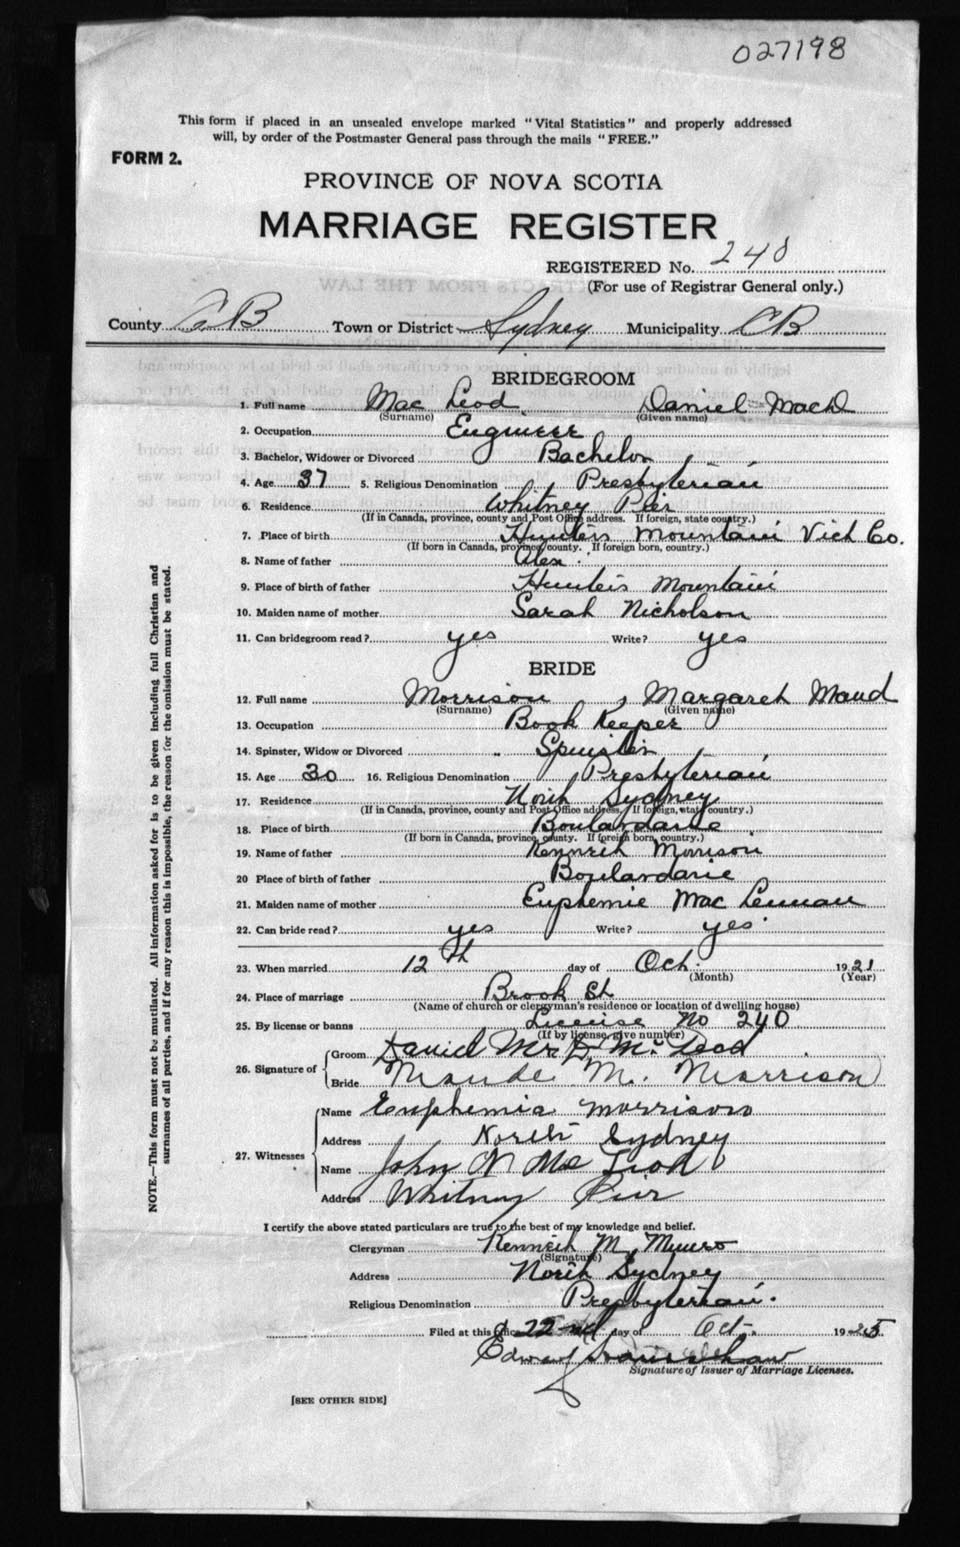 027198
This form if placed in an unsealed envelope marked "Vital Statistics" and properly addressed
will, by order of the Postmaster General pass through the mails "FREE."
FORM 2.
PROVINCE OF NOVA SCOTIA
MARRIAGE REGISTER
REGISTERED No. 240
(For use of Registrar General only.)
County CB Town or District Sydney Municipality CB
BRIDEGROOM
1. Full name Mac Leod Daniel MacD
(Surname) (Given name)
2. Occupation Engineer
3. Bachelor, Widower or Divorced Bachelor
4. Age 37 5. Religious Denomination Presbyterian
6. Residence Whitney Pier
(If in Canada, province, county and Post Office address. If foreign, state country.)
7. Place of birth Hunters Mountain Vict Co.
(If born in Canada, province, county. If foreign born, country.)
8. Name of father Alex.
9. Place of birth of father Hunters Mountain
10. Maiden name of mother Sarah Nicholson
11. Can bridegroom read? yes Write? yes
BRIDE
12. Full name Morrison, Margaret Maud
(Surname) (Given name)
13. Occupation Book Keeper
14. Spinster, Widow or Divorced Spinster
15. Age 30 16. Religious Denomination Presbyterian
17. Residence North Sydney
(If in Canada, province, county and Post Office address. If foreign, state country.)
18. Place of birth Boulardarie
(If born in Canada, province, county. If foreign born, country.)
19. Name of father Kenneth Morrison
20 Place of birth of father Boulardarie
21. Maiden name of mother Euphemie Mac Lennan
22. Can bride read? yes Write? yes
23. When married 12th day of Oct. 1921
(Month) (Year)
24. Place of marriage Brook St
(Name of church or clergyman's residence or location of dwelling house)
25. By license or banns License No 240
(If by license, give number)
26. Signature of
Groom Daniel McD McLeod
Bride Maude M. Morrison
27. Witnesses
Name Euphemia Morrison
Address North Sydney
Name John N McLeod
Address Whitney Pier
I certify the above stated particulars are true to the best of my knowledge and belief.
Clergyman Kenneth M Munro
(Signature)
Address North Sydney
Religious Denomination Presbyterian.
Filed at this office 22nd day of Oct. 1925
Edward
Signature of Issuer of Marriage Licenses.
[SEE OTHER SIDE]
NOTE.—This form must not be mutilated. All information asked for is to be given including full Christian and
surnames of all parties, and if for any reason this is impossible, the reason for the omission must be stated.